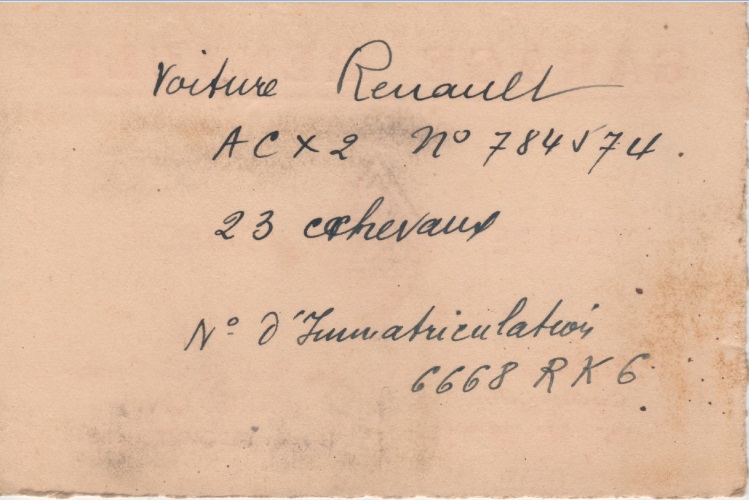 Voiture Renault
ACX2 N° 784574.
23 chevaux
N° d'Immatriculation
6668 RK6